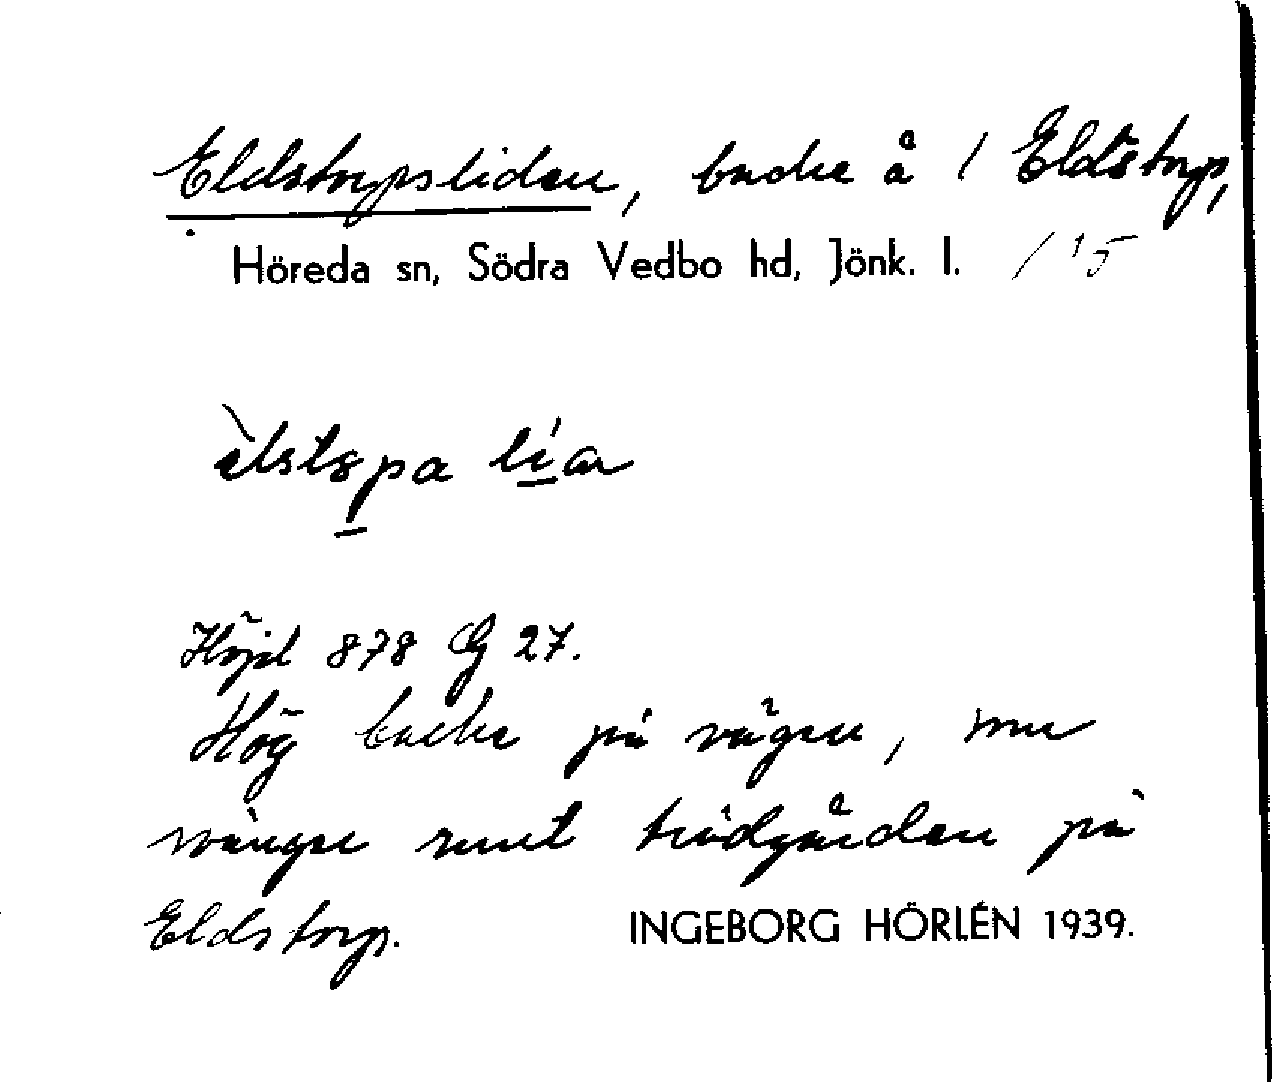 Eldstorpsliden, backe å / Eldstorp,
Höreda sn, Södra Vedbo hd, Jönk. l. / 15
Höjd 878 G 27.
Hög backe på vägen, som
svänger runt trädgården på
Eldstorp.
INGEBORG HÖRLÉN 1939.